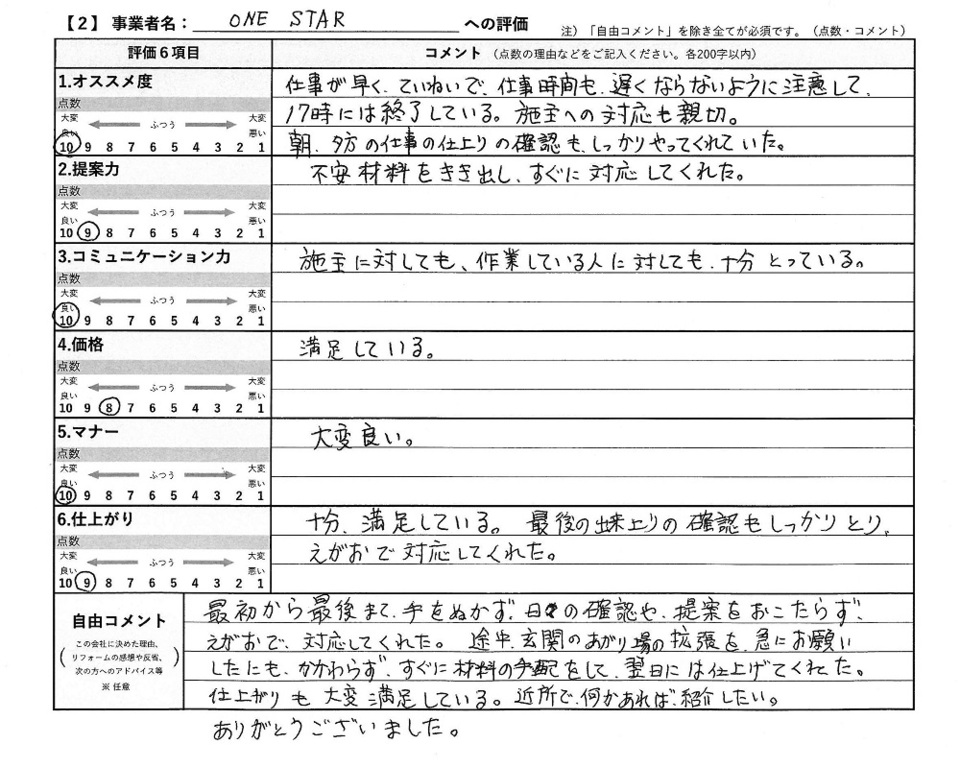 【2】事業者名： ONE STAR への評価
注）「自由コメント」を除き全てが必須です。（点数・コメント）
評価6項目 コメント（点数の理由などをご記入ください。各200字以内）
1.オススメ度
点数
大変 ふつう 大変
良い 悪い
10 9 8 7 6 5 4 3 2 1
仕事が早く、ていねいで、仕事時間も、遅くならないように注意して、
17時には終了している。施主への対応も親切。
朝、夕方の仕事の仕上りの確認も、しっかりやってくれていた。
2.提案力
点数
大変 ふつう 大変
良い 悪い
10 9 8 7 6 5 4 3 2 1
不安材料をきき出し、すぐに対応してくれた。
3.コミュニケーション力
点数
大変 ふつう 大変
良い 悪い
10 9 8 7 6 5 4 3 2 1
施主に対しても、作業している人に対しても、十分とっている。
4.価格
点数
大変 ふつう 大変
良い 悪い
10 9 8 7 6 5 4 3 2 1
満足している。
5.マナー
点数
大変 ふつう 大変
良い 悪い
10 9 8 7 6 5 4 3 2 1
大変良い。
6.仕上がり
点数
大変 ふつう 大変
良い 悪い
10 9 8 7 6 5 4 3 2 1
十分、満足している。最後の出来上りの確認もしっかりとり、
えがおで対応してくれた。
自由コメント
（この会社に決めた理由、
リフォームの感想や反省、
次の方へのアドバイス等）
※ 任意
最初から最後まで、手をぬかず、日々の確認や、提案をおこたらず、
えがおで、対応してくれた。途中、玄関のあがり場の拡張を、急にお願い
したにも、かかわらず、すぐに材料の手配をして、翌日には仕上げてくれた。
仕上がりも大変満足している。近所で、何かあれば、紹介したい。
ありがとうございました。